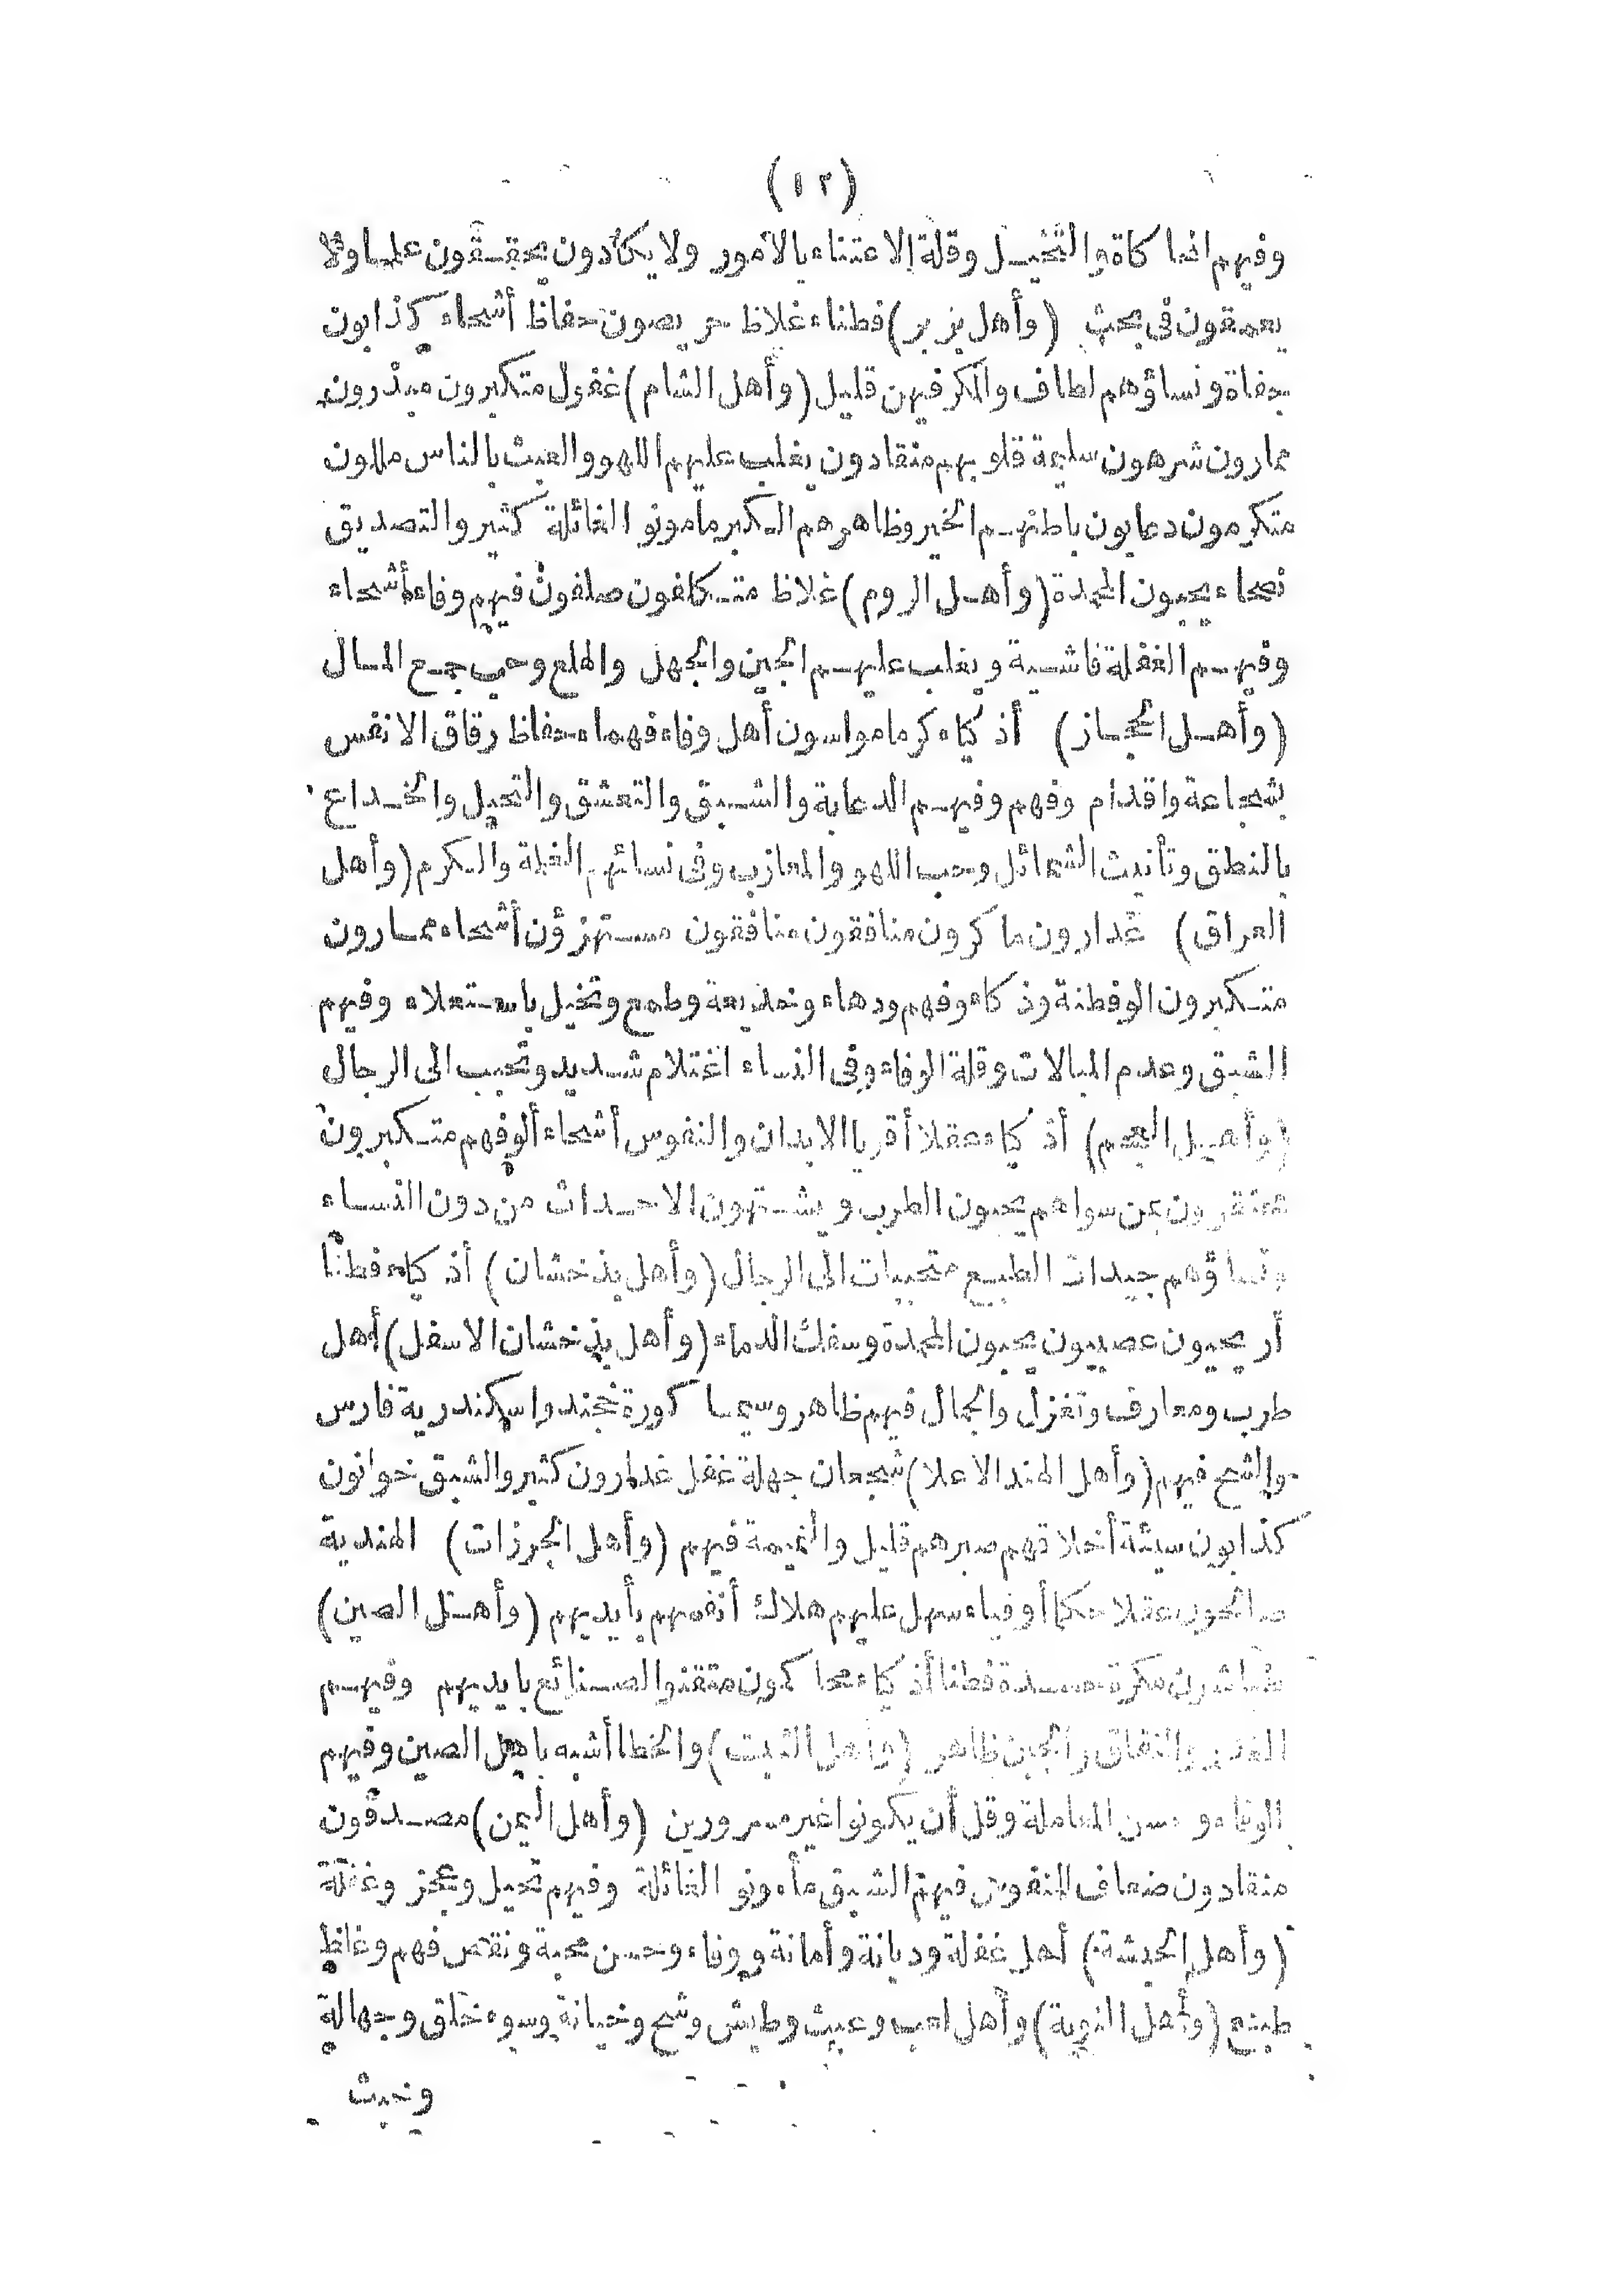 (١٢)
وفيهم المحاكاة والتخيل وقلة الاعتناء بالأمور ولا يكادون يحققون علما ولا
يعمقون فى بحث (وأهل بربر) فطناء غلاظ حريصون حفاظ أشحاء كذابون
جفاة ونساؤهم لطاف والمكر فيهن قليل (وأهل الشام) غفول متكبرون مبذرون
ممارون شرهون سليمة قلوبهم منقادون يغلب عليهم اللهو والعبث بالناس ملاون
متكرمون دعابون باطنهم الخير وظاهرهم الكبر مامونو الغائلة كثير والتصديق
نصحاء يحبون المحمدة (وأهل الروم) غلاظ متكلفون صلفون فيهم وفاء أشحاء
وفيهم الغفلة فاشية ويغلب عليهم الجبن والجهل والهلع وحب جمع المال
(وأهل الحجاز) أذكياء كرما مواسون أهل وفاء فهماء حفاظ رقاق الانفس
شجاعة واقدام وفهم وفيهم الدعابة والشبق والتعشق والتحيل والخداع
بالنطق وتأنيث الشمائل وحب اللهو والمعازب وفى نسائهم الغلمة والكرم (وأهل
العراق) غدارون ماكرون منافقون منافقون مستهزؤن أشحاء ممارون
متكبرون الوفطنة وذكاء وفهم ودهاء وخديعة وطمع وتخيل باستعلاء وفيهم
الشبق وعدم المبالات وقلة الوفاء وفى النساء اغتلام شديد وتحبب الى الرجال
(وأهل العجم) أذكياء عقلا أقريا الابدان والنفوس أشحاء ألوفهم متكبرون
محتقرون عن سواهم يحبون الطرب ويشتهون الاحداث من دون النساء
ونساؤهم جيدات الطبع متحببات الى الرجال (وأهل بذخشان) أذكياء فطنا
أريحيون عصبيون يحبون المحمدة وسفك الدماء (وأهل بذخشان الاسفل) أهل
طرب ومعارف وتغزل والجمال فيهم ظاهر وسيما كورة خجند واسكندرية فارس
والشح فيهم (وأهل الهند الاعلا) شجعان جهلة غفل غدارون كثير والشبق خوانون
كذابون سيئة أخلاقهم صبرهم قليل والنميمة فيهم (وأهل الجرزات) الهندية
صالحون عقلا حكما أوفياء سهل عليهم هلاك أنفسهم بأيديهم (وأهل الصين)
مكرة حسدة فطنا أذكياء محاكون متقنو الصنائع بايديهم وفيهم
الغدر والنفاق والجبن ظاهر (وأهل التبت) والخطا أشبه باهل الصين وفيهم
الوفاء وحسن المعاملة وقل أن يكونوا غير مسرورين (وأهل اليمن) مصدقون
منقادون ضعاف النفوس فيهم الشبق مأمونو الغائلة وفيهم تحيل وعجز وغفلة
(وأهل الحبشة) أهل غفلة وديانة وأمانة ووفاء وحسن محبة ونقص فهم وغلظ
طبع (وأهل النوبة) وأهل لعب وعبث وطيش وشح وخيانة وسوء خلق وجهالة
وخبث